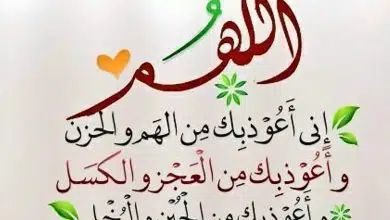 اللهم
إنى أَعُوْذُبِكَ مِنَ الهَم والحَزَن
وأَعُوْذُبِكَ مِنَ الْعَجْزِ والكَسَل
وأَعُوْذُبِكَ مِنَ الْجُبْنِ والْبُخْل